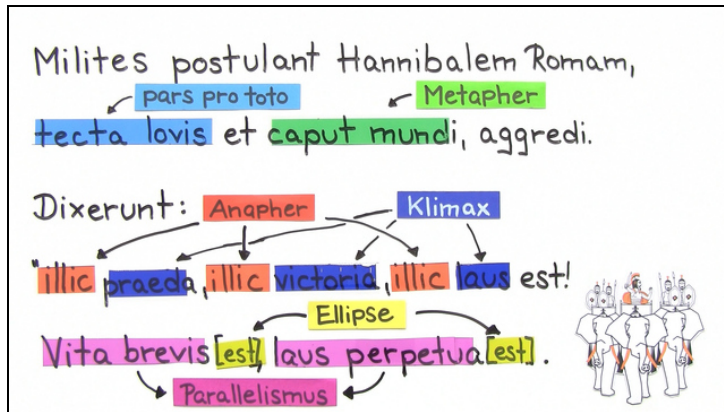 Milites postulant Hannibalem Romam,
pars pro toto Metapher
tecta Iovis et caput mundi, aggredi.
Dixerunt: Anapher Klimax
"illic praeda, illic victoria, illic laus est!
Ellipse
Vita brevis [est], laus perpetua [est].
Parallelismus